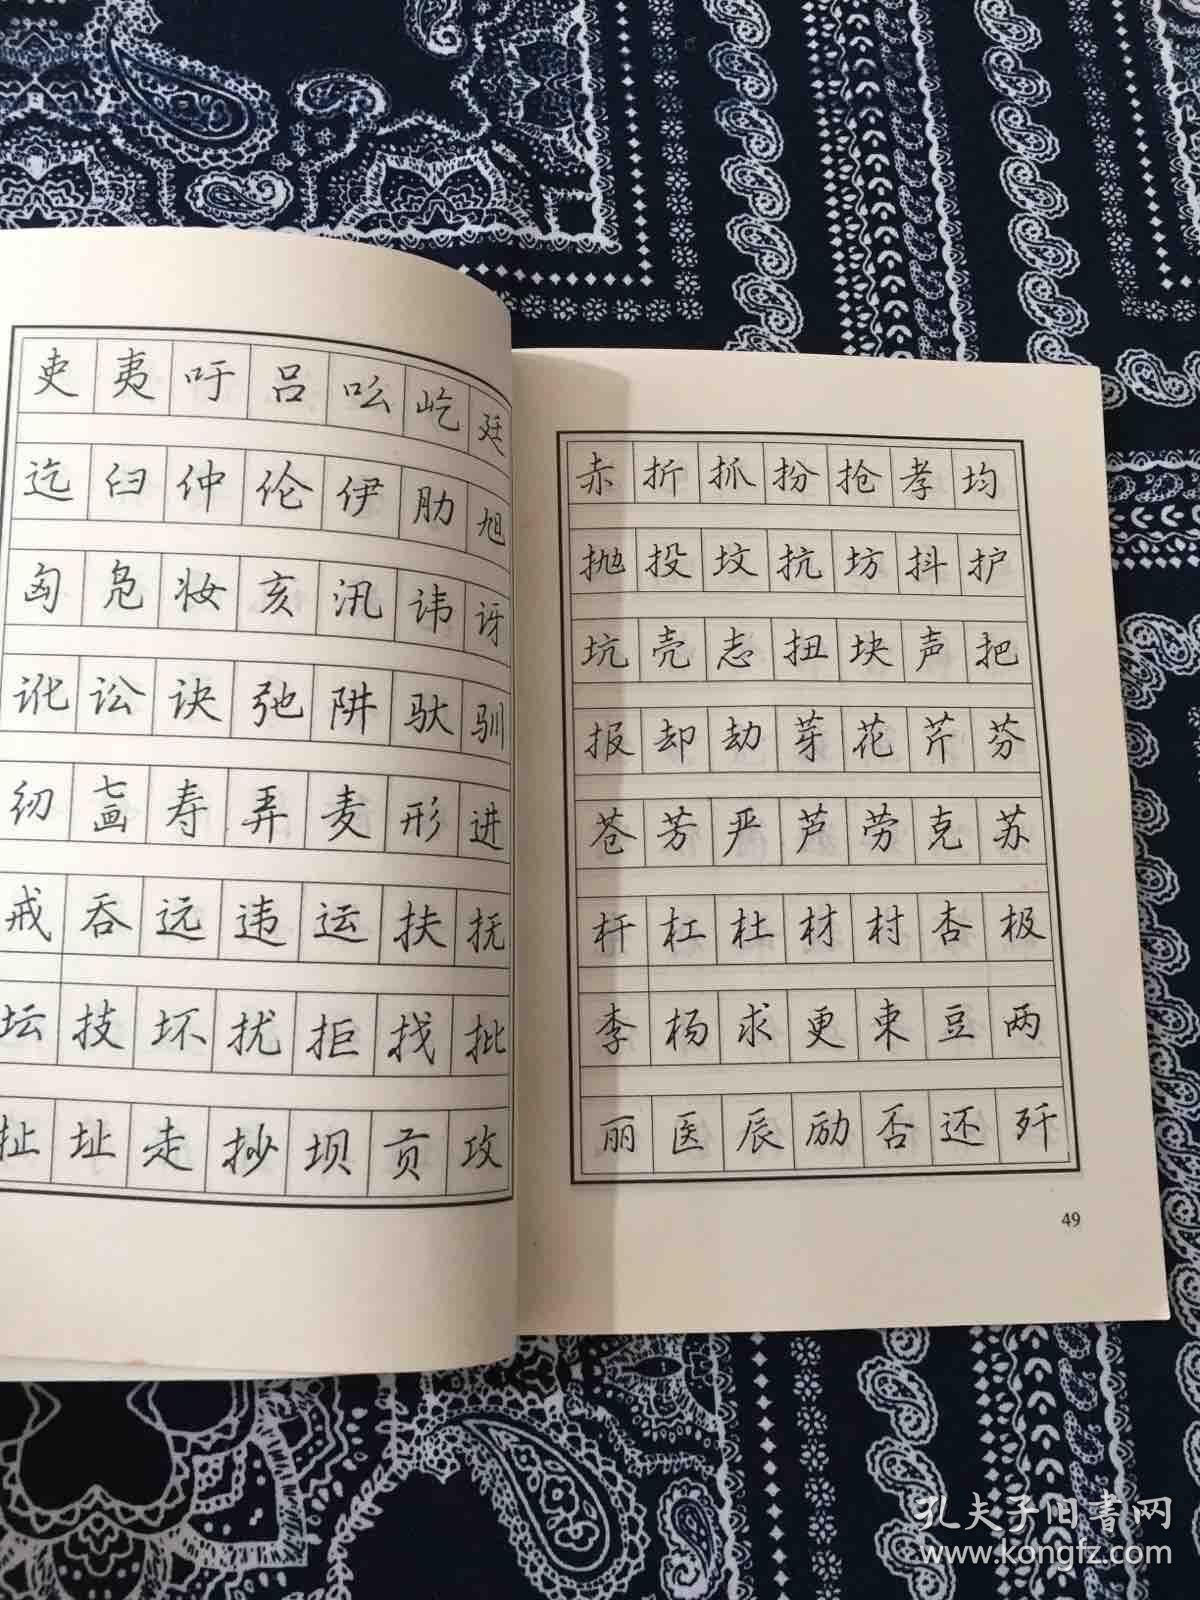 吏夷吁吕吆屹廷
迄臼仲伦伊肋旭
匈凫妆亥汛讳讶
讹讼诀弛阱驮驯
纫七画寿弄麦形进
戒吞远违运扶抚
坛技坏扰拒找批
扯址走抄坝贡攻
赤折抓扮抢孝均
抛投坟抗坊抖护
坑壳志扭块声把
报却劫芽花芹芬
苍芳严芦劳克苏
杆杠杜材村杏极
李杨求更束豆两
丽医辰励否还歼
49
孔夫子旧書网
www.kongfz.com